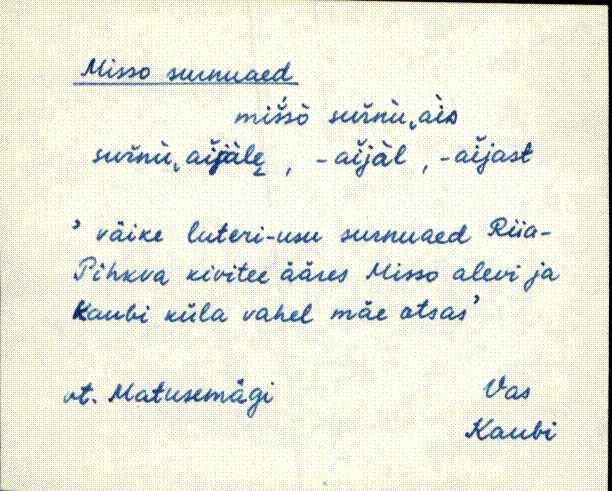 Misso surnuaed
miśsò surnù‿ais
surnù‿aijàlẹ, -aijàl, -aijast
’väike luteri-usu surnuaed Riia-
Pihkva kivitee ääres Misso alevi ja
Kaubi küla vahel mäe otsas’
vt. Matusemägi
Vas
Kaubi